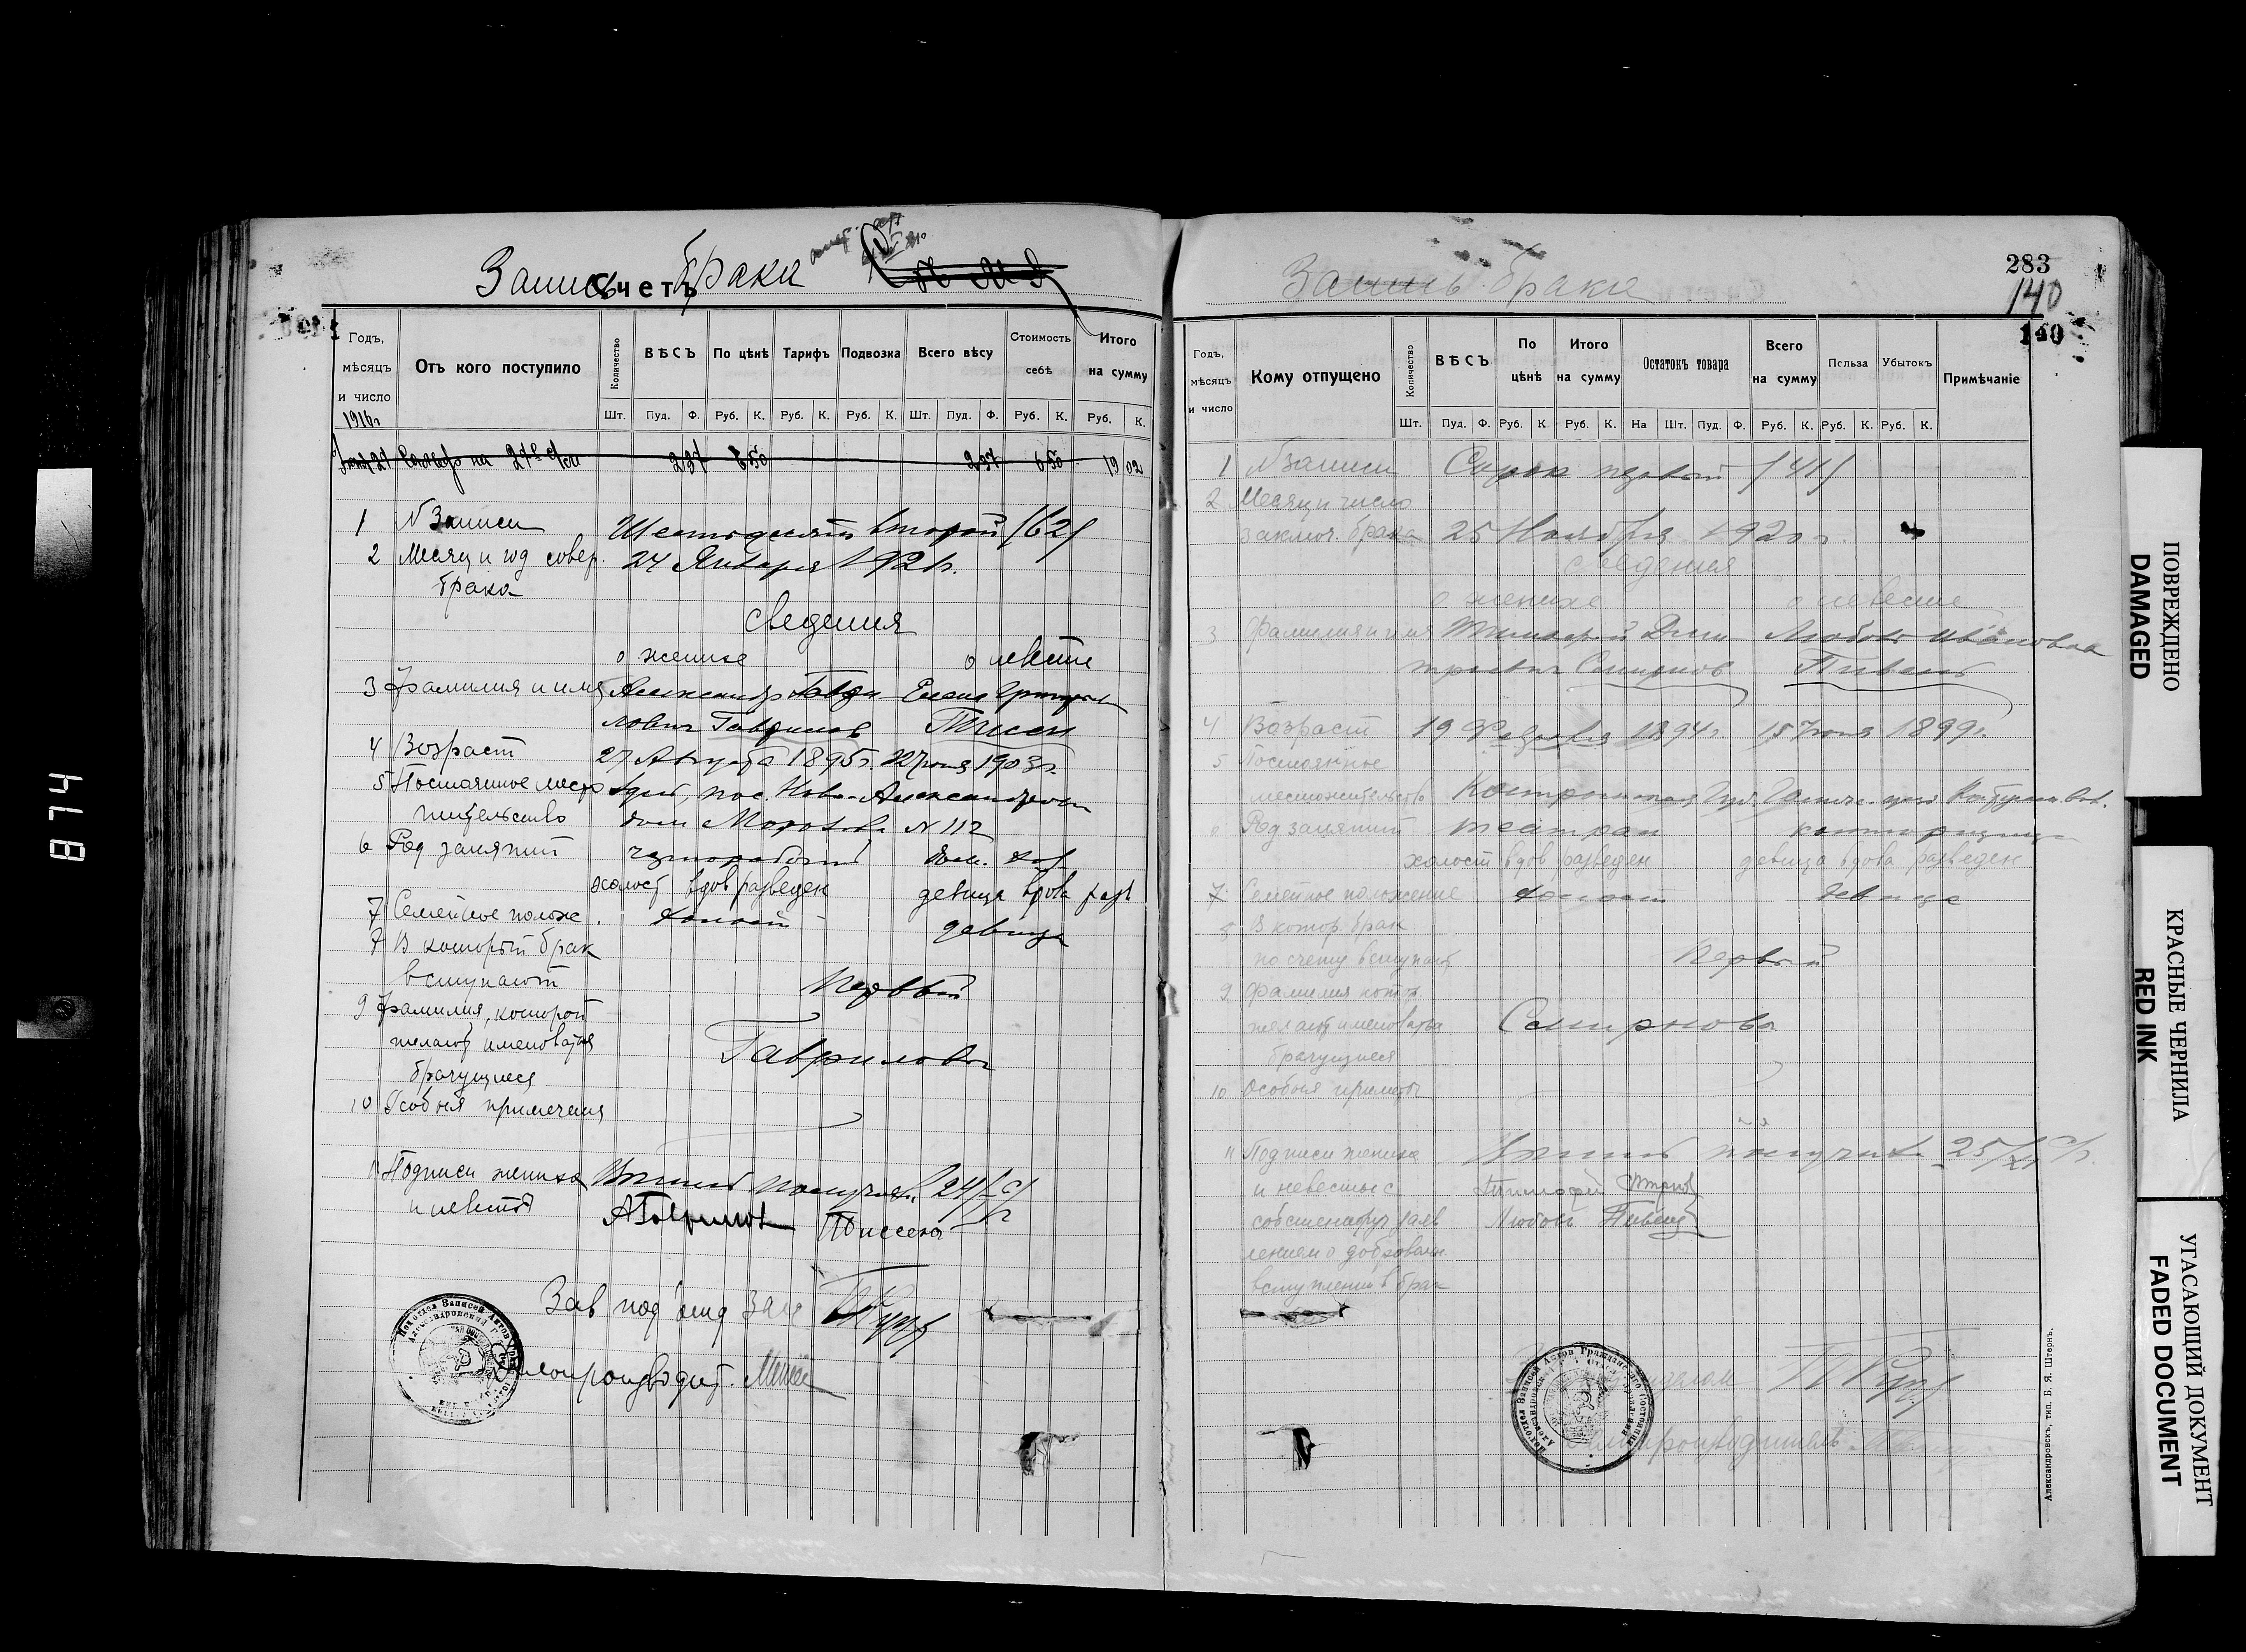 Запись брака
Счетъ
Годъ, мѣсяцъ и число
Отъ кого поступило
Количество
ВѢСЪ
По цѣнѣ
Тарифъ
Подвозка
Всего вѣсу
Стоимость себѣ
Итого на сумму
Шт. Пуд. Ф. Руб. К. Руб. К. Руб. К. Шт. Пуд. Ф. Руб. К. Руб. К.
1916г
на 27е 237 6 50 237 6 50 19 02
1 N Записи Шестьдесят второй /62/
2 Месяц и год совер. 24 Января 1921г.
брака
Сведения
о жениха о невесте
3 Фамилия и имя Александр Елена
лович Гаврилов Тиссен
4 Возраст 27 Августа 1895г. 22 июня 1903г.
5 Постоянное место пос. Ново-Александров
жительство дом Морозова N 112
6 Род занятий чернорабочий дом. хоз
холост вдов разведен девица вдова разв
7 Семейное полож. холост девица
7 В который брак
вступают Первый
9 Фамилия, которой
желают именоваться Гавриловы
брачущиеся
10 Особыя примечания
11 Подписи жениха получил 24/I
и невесты АГаврилов Тиссен
Зав под отд Зап
Делопроизводит.
Запись брака
283
140
140
Годъ, мѣсяцъ и число
Кому отпущено
Количество
ВѢСЪ
По цѣнѣ
Итого на сумму
Остатокъ товара
Всего на сумму
Польза
Убытокъ
Примѣчаніе
Шт. Пуд. Ф. Руб. К. Руб. К. На Шт. Пуд. Ф. Руб. К. Руб. К. Руб. К.
1 N записи Сорок первый /41/
2 Месяц и число
заключ. брака 25 Ноября 1920г.
сведения
о женихе о невесте
3 Фамилия и имя Тимофей Дми Любовь Ивановна
триевич Смирнов Пивень
4 Возраст 19 Февраля 1894г. 15 Июня 1899г.
5 Постоянное
местожительство Костромская Губ.
6 Род занятий театрал конторщица
холост вдов разведен девица вдова разведен
7 Семейное положение холост девица
8 В котор. брак
по счету вступают Первый
9 Фамилия котор.
желают именоваться Смирновы
брачущиеся
10 Особыя приметы
11 Подписи жениха получил 25/XI
и невесты с Тимофей
собственоруч заяв Любовь Пивень
лением о добровольн
вступлении в брак
Делопроизводитель
Подотдел Записей Актов Гражданского Состояния
Александровскъ, тип. Б. Я. Штернъ.
ПОВРЕЖДЕНО
DAMAGED
КРАСНЫЕ ЧЕРНИЛА
RED INK
УГАСАЮЩИЙ ДОКУМЕНТ
FADED DOCUMENT
8174